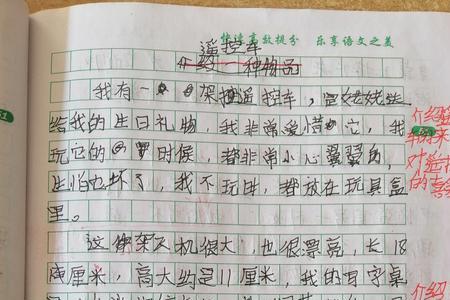 快读高效提分 乐享语文之美
遥控车
介绍一种物品
我有一架遥控车，是姥姥送
给我的生日礼物，我非常爱惜它，我
玩它的时候，都非常小心翼翼的，
生怕它坏了，我不玩时，都放在玩具盒
里。
这架飞机很大，也很漂亮，长18
厘米，高大约是11厘米，我的写字桌
介绍
来
对
的喜
介绍